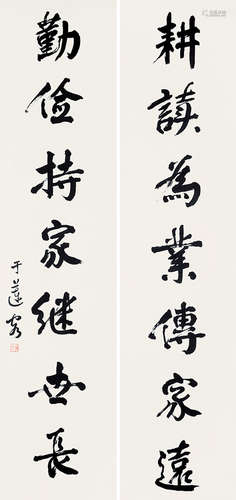 耕讀為業傳家遠
勤儉持家继世長
于蓮客